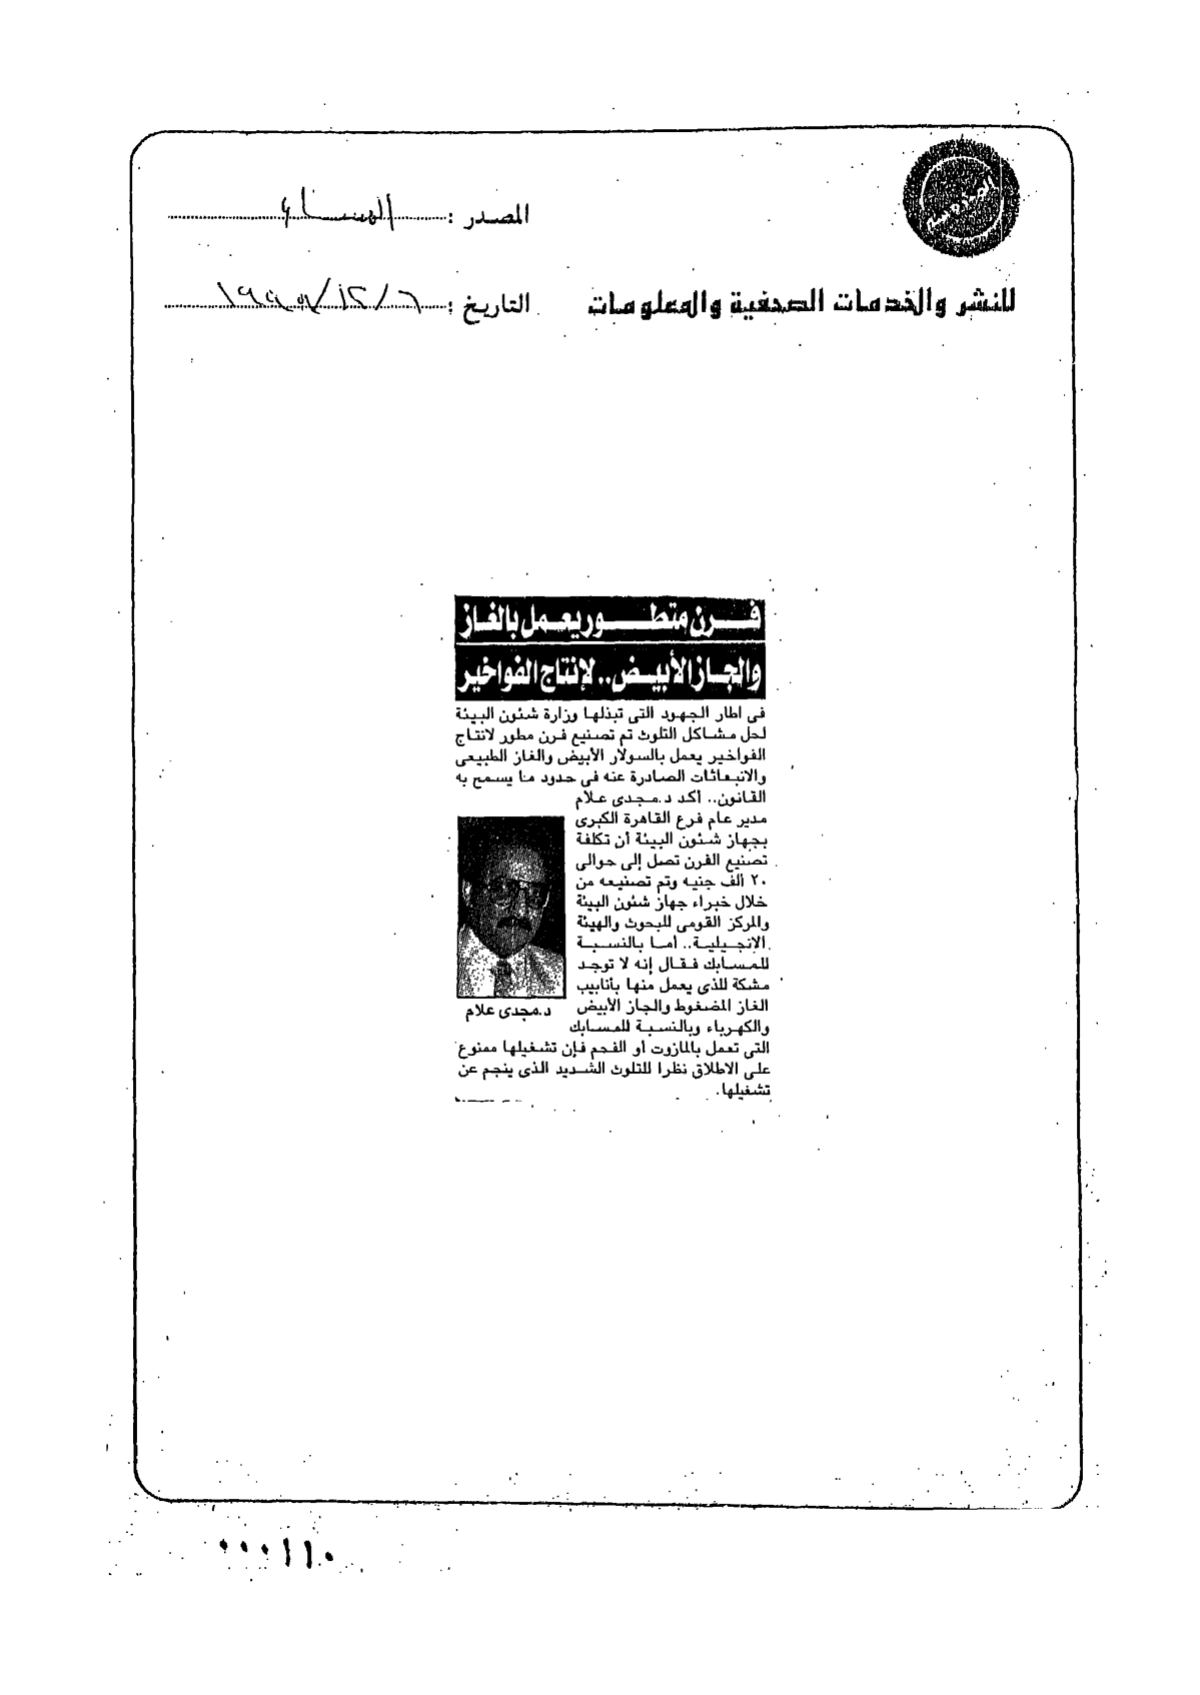 المصدر : المساء
للنشر والخدمات الصحفية والمعلومات
التاريخ : ٦ / ١٢ /
فرن متطور يعمل بالغاز
والجاز الأبيض.. لإنتاج الفواخير
فى اطار الجهود التى تبذلها وزارة شئون البيئة
لحل مشاكل التلوث تم تصنيع فرن مطور لانتاج
الفواخير يعمل بالسولار الأبيض والغاز الطبيعى
والانبعاثات الصادرة عنه فى حدود ما يسمح به
القانون.. أكد د.مجدى علام
مدير عام فرع القاهرة الكبرى
بجهاز شئون البيئة أن تكلفة
تصنيع الفرن تصل إلى حوالى
٢٠ ألف جنيه وتم تصنيعه من
خلال خبراء جهاز شئون البيئة
والمركز القومى للبحوث والهيئة
الإنجيلية.. أما بالنسبة
للمسابك فقال إنه لا توجد
مشكة للذى يعمل منها بأنابيب
الغاز المضغوط والجاز الأبيض
والكهرباء وبالنسبة للمسابك
التى تعمل بالمازوت أو الفحم فإن تشغيلها ممنوع
على الاطلاق نظرا للتلوث الشديد الذى ينجم عن
تشغيلها.
د.مجدى علام
٠٠٠١١٠